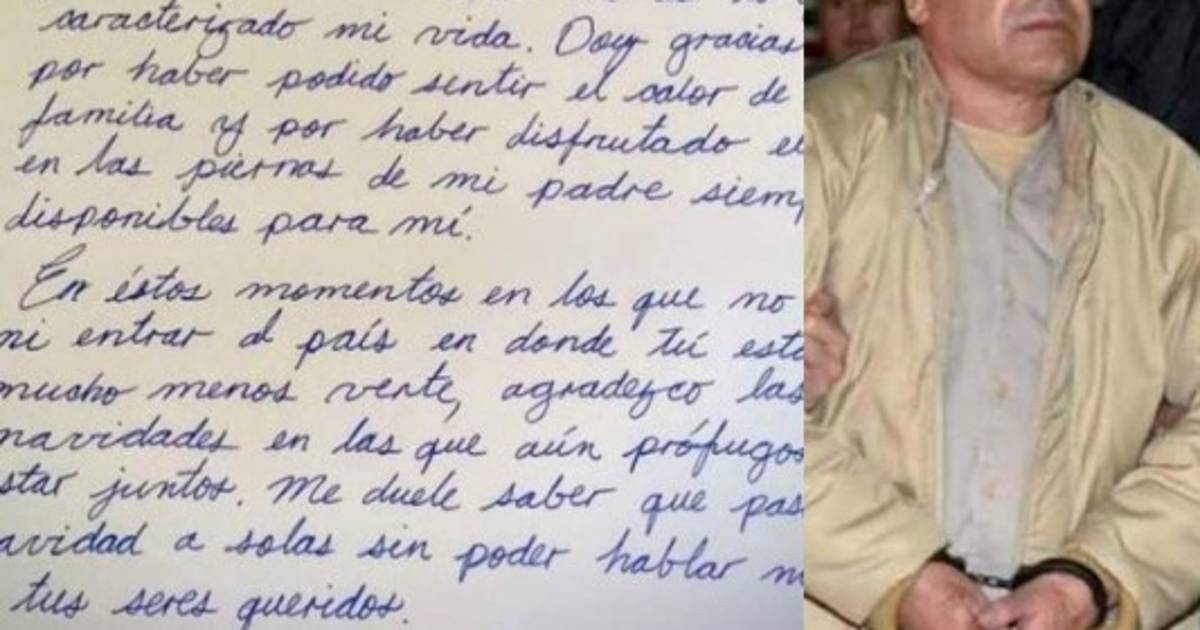 caracterizado mi vida. Doy gracias
por haber podido sentir el calor de
familia y por haber disfrutado el
en las piernas de mi padre siem
disponibles para mí.
En éstos momentos en los que no
ni entrar al país en donde tú est
mucho menos verte, agradezco las
navidades en las que aún prófugos
star juntos. Me duele saber que pas
avidad a solas sin poder hablar n
tus seres queridos.